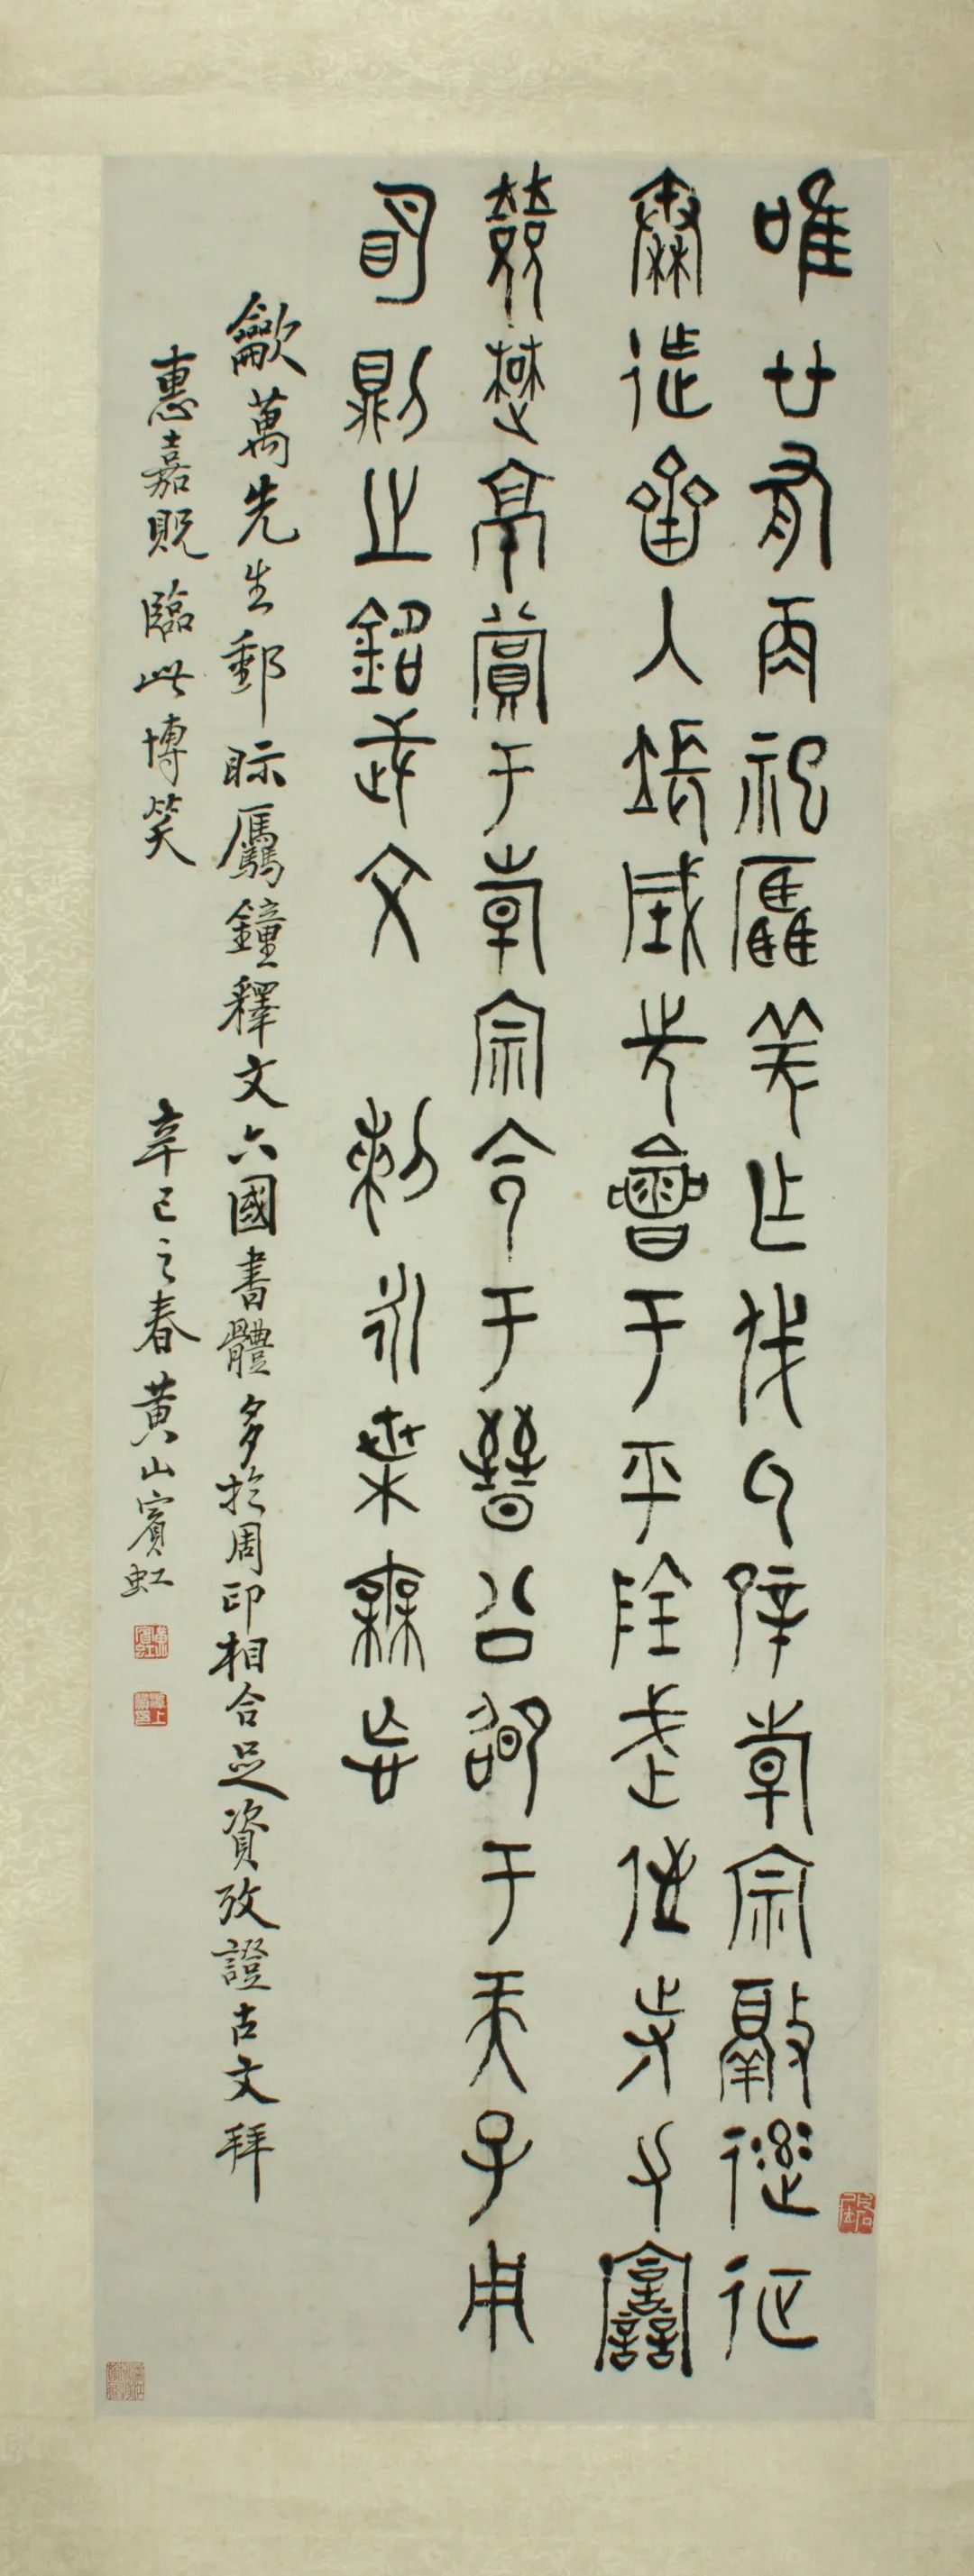 唯廿有再祀驫羌乍戎氒辟倝宗徹率征
秦迮齊入長城先會于平陰武侄寺力
楚京賞于倝宗令于晉公卲于天子用
明則之銘武文 剌永枼毋忘
萬先生郵眎驫鐘釋文六國書體多於周印相合足資攷證古文拜
惠嘉貺臨此博笑 辛巳之春黃山賓虹